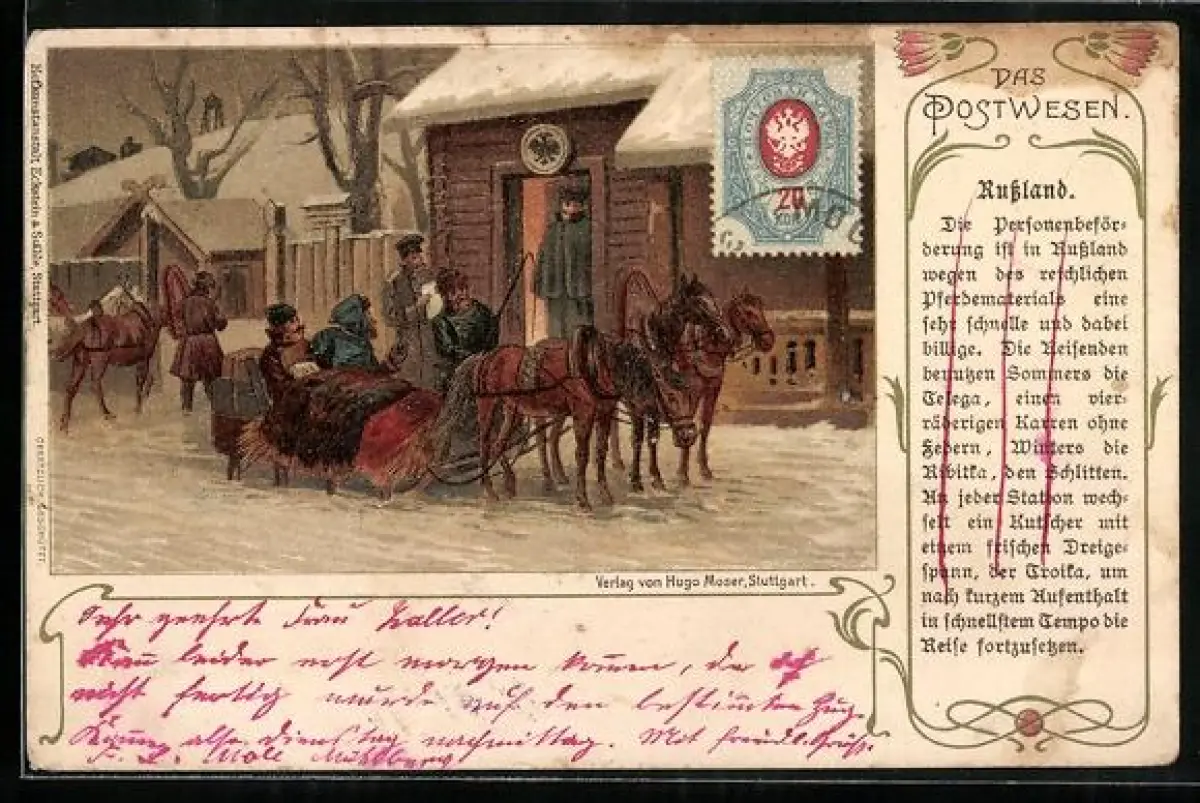 DAS
POSTWESEN.
Rußland.
Die Personenbeför-
derung ist in Rußland
wegen des reichlichen
Pferdematerials eine
sehr schnelle und dabei
billige. Die Reisenden
benutzen Sommers die
Telega, einen vier-
räderigen Karren ohne
Federn, Winters die
Kibitka, den Schlitten.
An jeder Station wech-
selt ein Kutscher mit
einem frischen Dreige-
spann, der Troika, um
nach kurzem Aufenthalt
in schnellstem Tempo die
Reise fortzusetzen.
20
Eckstein & Stähle, Stuttgart.
GESETZLICH GESCHÜTZT
Verlag von Hugo Moser, Stuttgart.
Sehr geehrte Frau Haller!
Kann leider erst morgen kommen, da ich
nicht fertig wurde auf den bestimmten Zug.
Komme also Dienstag nachmittag. Mit freundl. Grüß.